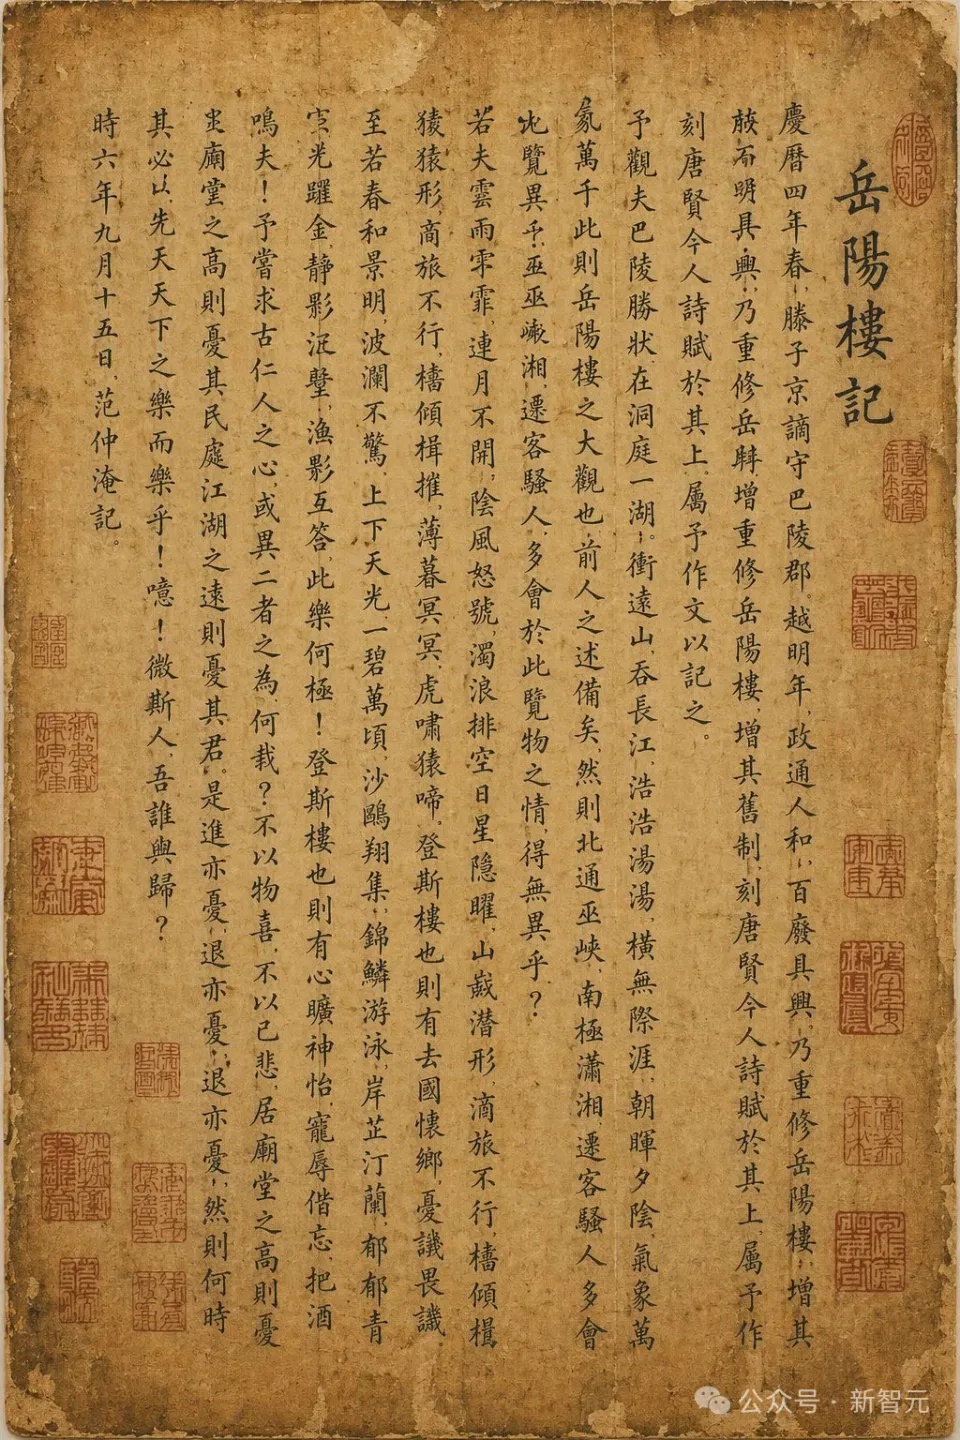 岳陽樓記
慶曆四年春,滕子京謫守巴陵郡。越明年,政通人和,百廢具興,乃重修岳陽樓,增其
明具興,乃重修岳增重修岳陽樓,增其舊制,刻唐賢今人詩賦於其上,屬予作
刻唐賢今人詩賦於其上,屬予作文以記之。
予觀夫巴陵勝狀,在洞庭一湖。衝遠山,吞長江,浩浩湯湯,橫無際涯,朝暉夕陰,氣象萬
萬千此則岳陽樓之大觀也,前人之述備矣,然則北通巫峽,南極瀟湘,遷客騷人多會
覽異予,巫巫湘,遷客騷人,多會於此覽物之情,得無異乎?
若夫雲雨霏,連月不開,陰風怒號,濁浪排空日星隱曜,山潛形,滴旅不行,檣傾
猿猿形,商旅不行,檣傾楫摧,薄暮冥冥,虎嘯猿啼,登斯樓也則有去國懷鄉,憂譏畏譏
至若春和景明,波瀾不驚,上下天光,一碧萬頃,沙鷗翔集,錦鱗游泳,岸芷汀蘭,郁郁青
光躍金,靜影泯壁,漁影互答,此樂何極!登斯樓也則有心曠神怡,寵辱偕忘,把酒
鳴夫!予嘗求古仁人之心,或異二者之為,何哉?不以物喜,不以己悲,居廟堂之高則憂
廟堂之高則憂其民處江湖之遠則憂其君。是進亦憂,退亦憂,退亦憂,然則何時
其必以先天天下之樂而樂乎!噫!微斯人,吾誰與歸?
時六年九月十五日,范仲淹記。
公众号·新智元